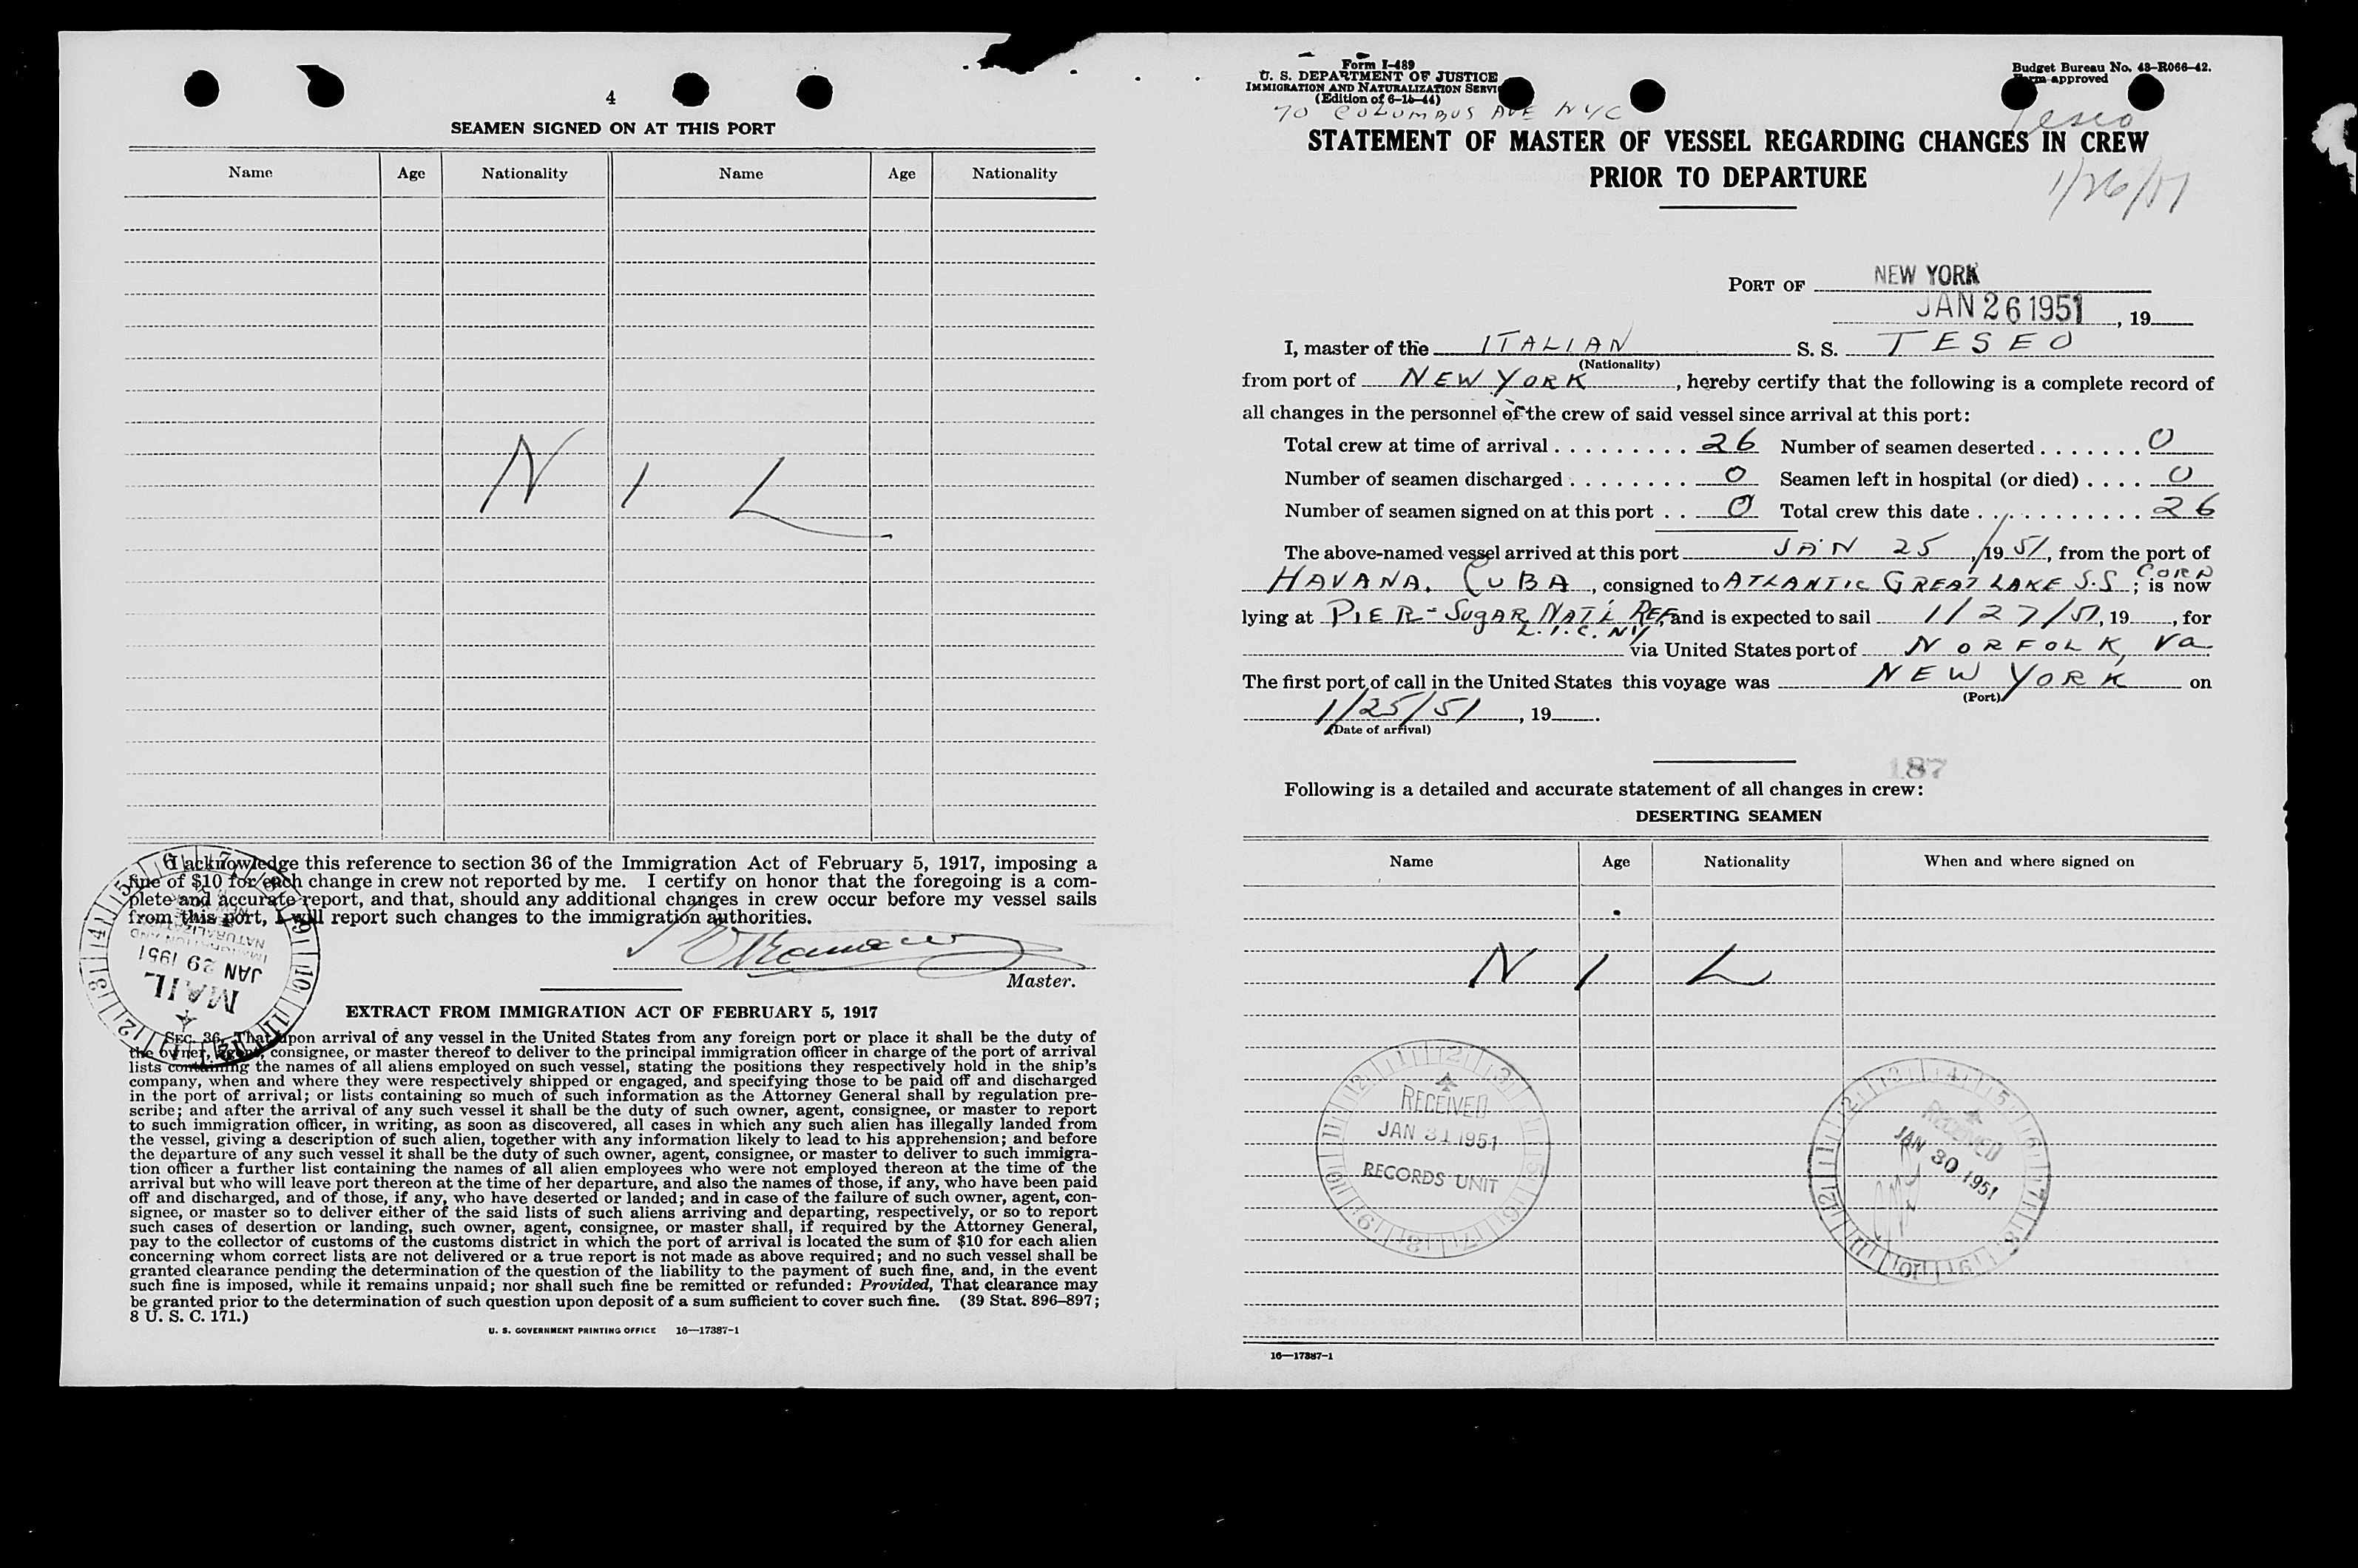 4
SEAMEN SIGNED ON AT THIS PORT
Name Age Nationality Name Age Nationality
N I L
I acknowledge this reference to section 36 of the Immigration Act of February 5, 1917, imposing a
fine of $10 for each change in crew not reported by me. I certify on honor that the foregoing is a com-
plete and accurate report, and that, should any additional changes in crew occur before my vessel sails
from this port, I will report such changes to the immigration authorities.
Master.
MAIL
JAN 29 1951
EXTRACT FROM IMMIGRATION ACT OF FEBRUARY 5, 1917
SEC. 36. That upon arrival of any vessel in the United States from any foreign port or place it shall be the duty of
the owner, agent, consignee, or master thereof to deliver to the principal immigration officer in charge of the port of arrival
lists containing the names of all aliens employed on such vessel, stating the positions they respectively hold in the ship's
company, when and where they were respectively shipped or engaged, and specifying those to be paid off and discharged
in the port of arrival; or lists containing so much of such information as the Attorney General shall by regulation pre-
scribe; and after the arrival of any such vessel it shall be the duty of such owner, agent, consignee, or master to report
to such immigration officer, in writing, as soon as discovered, all cases in which any such alien has illegally landed from
the vessel, giving a description of such alien, together with any information likely to lead to his apprehension; and before
the departure of any such vessel it shall be the duty of such owner, agent, consignee, or master to deliver to such immigra-
tion officer a further list containing the names of all alien employees who were not employed thereon at the time of the
arrival but who will leave port thereon at the time of her departure, and also the names of those, if any, who have been paid
off and discharged, and of those, if any, who have deserted or landed; and in case of the failure of such owner, agent, con-
signee, or master so to deliver either of the said lists of such aliens arriving and departing, respectively, or so to report
such cases of desertion or landing, such owner, agent, consignee, or master shall, if required by the Attorney General,
pay to the collector of customs of the customs district in which the port of arrival is located the sum of $10 for each alien
concerning whom correct lists are not delivered or a true report is not made as above required; and no such vessel shall be
granted clearance pending the determination of the question of the liability to the payment of such fine, and, in the event
such fine is imposed, while it remains unpaid; nor shall such fine be remitted or refunded: Provided, That clearance may
be granted prior to the determination of such question upon deposit of a sum sufficient to cover such fine. (39 Stat. 896–897;
8 U. S. C. 171.)
U. S. GOVERNMENT PRINTING OFFICE 16—17387-1
Form I-489
U. S. DEPARTMENT OF JUSTICE
IMMIGRATION AND NATURALIZATION SERVI
(Edition of 6-15-44)
Budget Bureau No. 43-R066-42.
Form approved
70 COLUMBUS AVE NYC
Teseo
STATEMENT OF MASTER OF VESSEL REGARDING CHANGES IN CREW
PRIOR TO DEPARTURE
1/26/51
PORT OF NEW YORK
JAN 26 1951, 19
I, master of the ITALIAN S. S. TESEO
(Nationality)
from port of NEW YORK, hereby certify that the following is a complete record of
all changes in the personnel of the crew of said vessel since arrival at this port:
Total crew at time of arrival 26 Number of seamen deserted 0
Number of seamen discharged 0 Seamen left in hospital (or died) 0
Number of seamen signed on at this port 0 Total crew this date 26
The above-named vessel arrived at this port JAN 25, 1951, from the port of
HAVANA. CUBA, consigned to ATLANTIC GREAT LAKE S.S CORP; is now
lying at PIER - SUGAR NAT'L REF. and is expected to sail 1/27/51, 19, for
L.I.C. NY via United States port of NORFOLK, Va
The first port of call in the United States this voyage was NEW YORK on
(Port)
1/25/51, 19.
(Date of arrival)
187
Following is a detailed and accurate statement of all changes in crew:
DESERTING SEAMEN
Name Age Nationality When and where signed on
N I L
RECEIVED
JAN 31 1951
RECORDS UNIT
RECEIVED
JAN 30 1951
16—17387-1